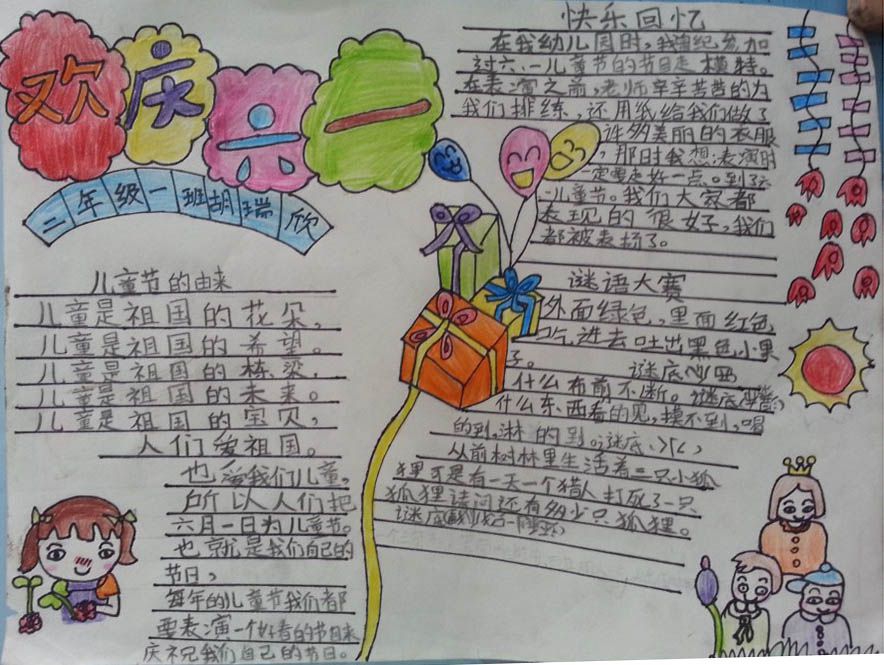 欢庆六一
二年级一班胡瑞欣
儿童节的由来
儿童是祖国的花朵,
儿童是祖国的希望。
儿童是祖国的栋梁,
儿童是祖国的未来。
儿童是祖国的宝贝,
人们爱祖国。
也爱我们儿童。
所以人们把
六月一日为儿童节。
也就是我们自己的
节日,
每年的儿童节我们都
要表演一个好看的节目来
庆祝我们自己的节日。
快乐回忆
在我幼儿园时,我曾纪参加
过六·一儿童节的节目走模特。
在表演之前,老师辛辛苦苦的为
我们排练,还用纸给我们做了
许多美丽的衣服
,那时我想:表演时
一定要走好一点。到了六
一儿童节。我们大家都
表现的很好,我们
都被表扬了。
谜语大赛
外面绿色,里面红色
吃进去吐出黑色小果
子。 谜底
什么布剪不断。谜底
什么东西看的见,摸不到,喝
的到,淋的到。谜底
从前树林里生活着三只小狐
狸可是有一天一个猎人打死了一只
狐狸请问还有多少只狐狸。
谜底